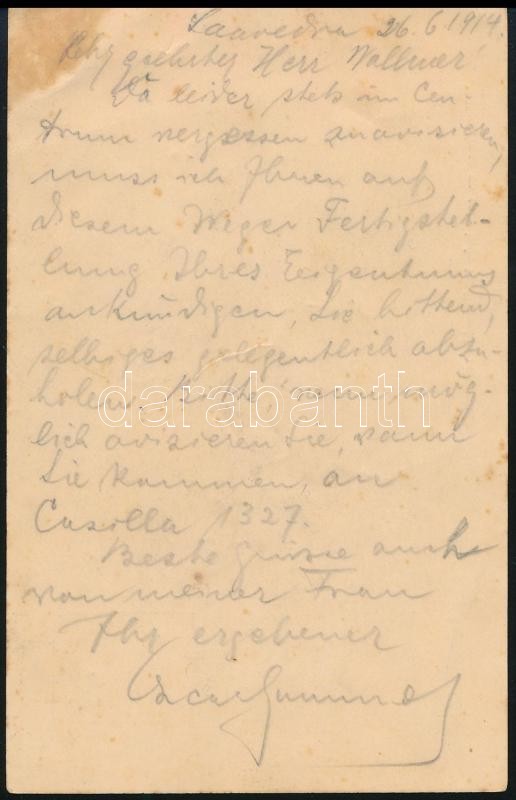 Saavedra 26.6.1914.
Sehr geehrter Herr Wollmer!
Da leider stets im Cen-
trum vergessen anavisieren,
muss ich Ihnen auf
diesem Wege Fertigstel-
lung Ihres Eigentums
ankündigen, Sie bittend,
selbiges gelegentlich abzu-
holen. Bitte, wenn mög-
lich avisieren Sie, wann
Sie kommen, an
Casilla 1327.
Beste Grüsse auch
von meiner Frau
Ihr ergebener
darabanth